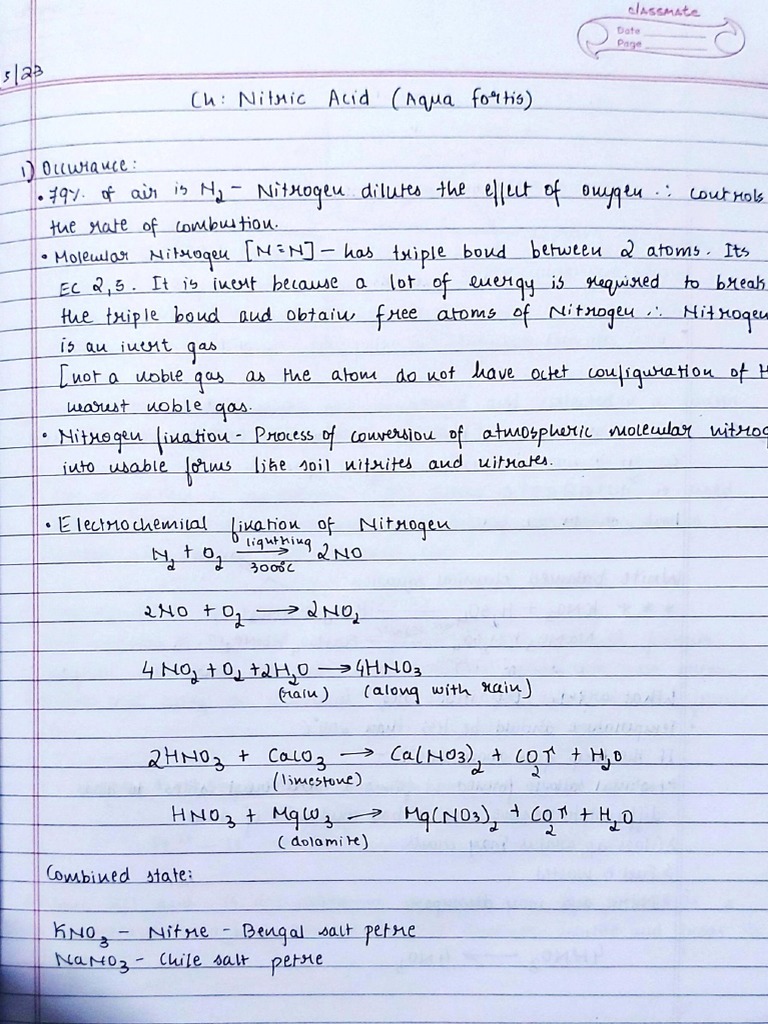 classmate
Date
Page
5/23
Ch: Nitric Acid (Aqua fortis)
1) Occurance:
• 79% of air is N₂ – Nitrogen dilutes the effect of oxygen ∴ controls
the rate of combustion.
• Molecular Nitrogen [N≡N] – has triple bond between 2 atoms. Its
EC 2,5. It is inert because a lot of energy is required to break
the triple bond and obtain free atoms of Nitrogen ∴ Nitrogen
is an inert gas
[not a noble gas as the atom do not have octet configuration of
nearest noble gas.
• Nitrogen fixation - Process of conversion of atmospheric molecular nitrog
into usable forms like soil nitrites and nitrates.
• Electrochemical fixation of Nitrogen
N₂ + O₂ lightning → 2NO
3000°C
2NO + O₂ → 2NO₂
4NO₂ + O₂ + 2H₂O → 4HNO₃
(rain) (along with rain)
2HNO₃ + CaCO₃ → Ca(NO₃)₂ + CO₂↑ + H₂O
(limestone)
HNO₃ + MgCO₃ → Mg(NO₃)₂ + CO₂↑ + H₂O
(dolamite)
Combined state:
KNO₃ – Nitre – Bengal salt petre
NaNO₃ – Chile salt petre